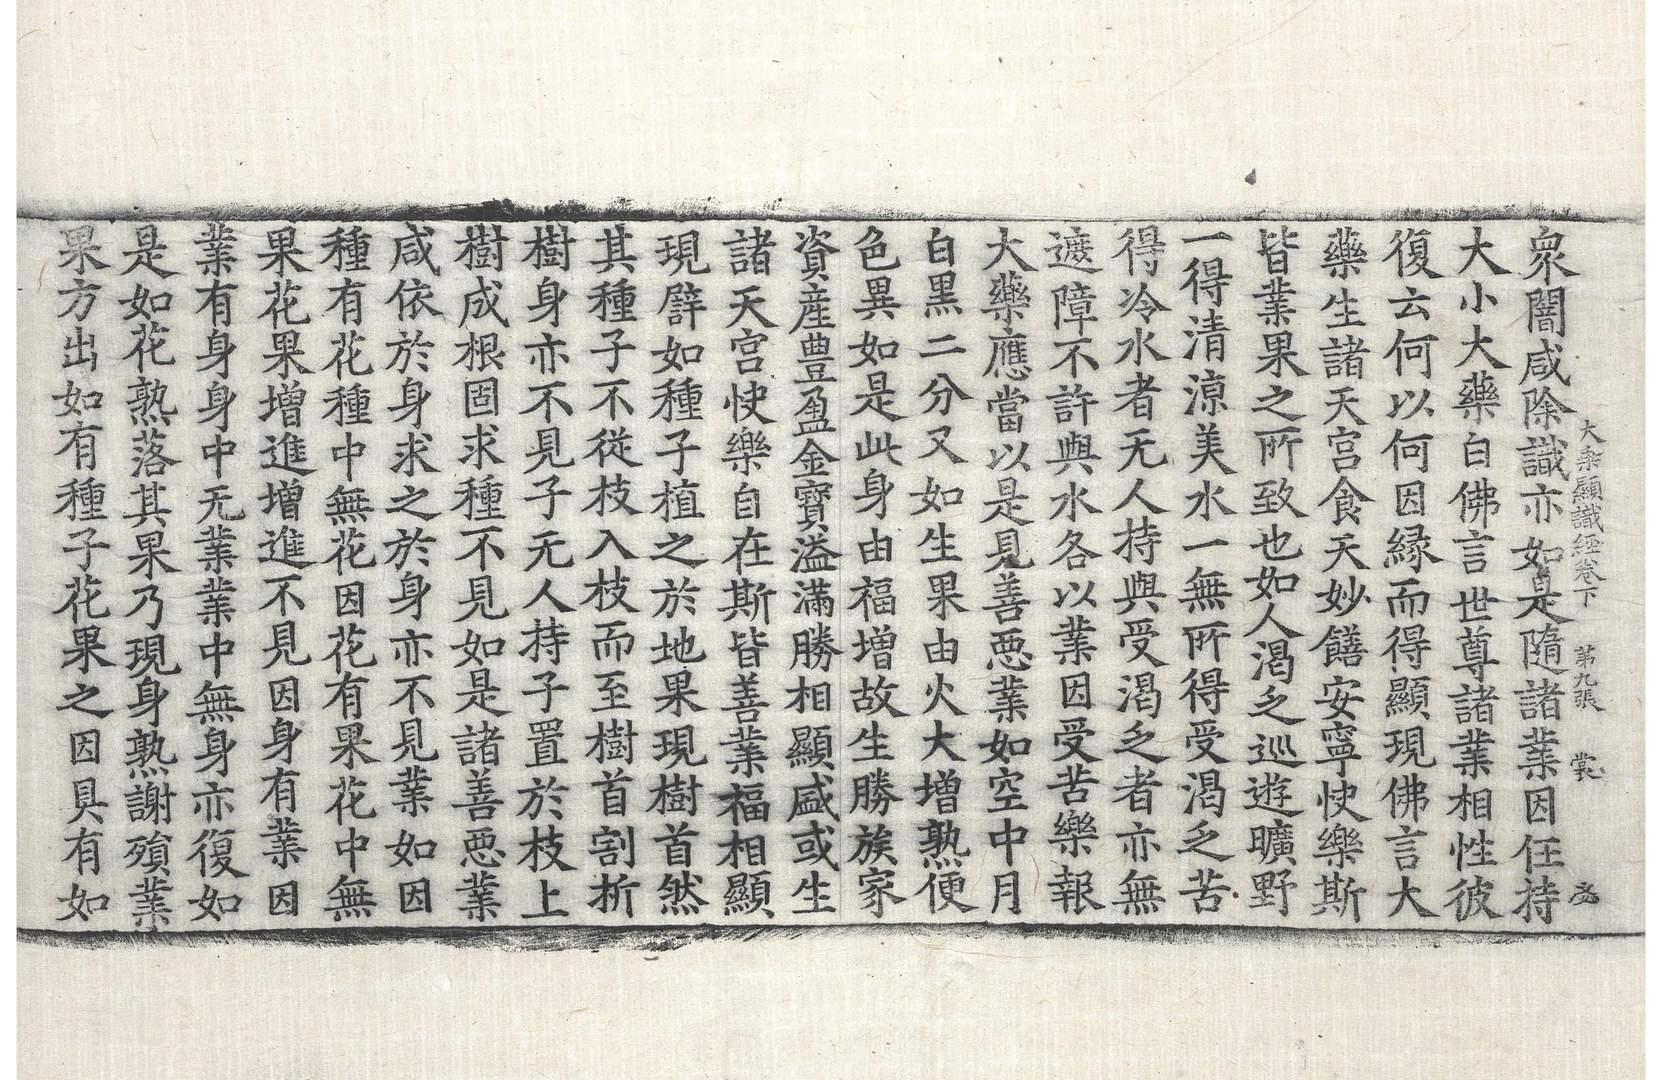 大乘顯識經卷下 第九張 裳
衆闇咸除識亦如是隨諸業因任持
大小大藥白佛言世尊諸業相性彼
復云何以何因縁而得顯現佛言大
藥生諸天宮食天妙饍安寧快樂斯
皆業果之所致也如人渴乏巡遊曠野
一得清涼美水一無所得受渴乏苦
得冷水者无人持與受渴乏者亦無
遮障不許與水各以業因受苦樂報
大藥應當以是見善惡業如空中月
白黒二分又如生果由火大增熟便
色異如是此身由福增故生勝族家
資産豊盈金寶溢滿勝相顯盛或生
諸天宮快樂自在斯皆善業福相顯
現辟如種子植之於地果現樹首然
其種子不從枝入枝而至樹首割析
樹身亦不見子无人持子置於枝上
樹成根固求種不見如是諸善惡業
咸依於身求之於身亦不見業如因
種有花種中無花因花有果花中無
果花果增進增進不見因身有業因
業有身身中无業業中無身亦復如
是如花熟落其果乃現身熟謝殞業
果方出如有種子花果之因具有如